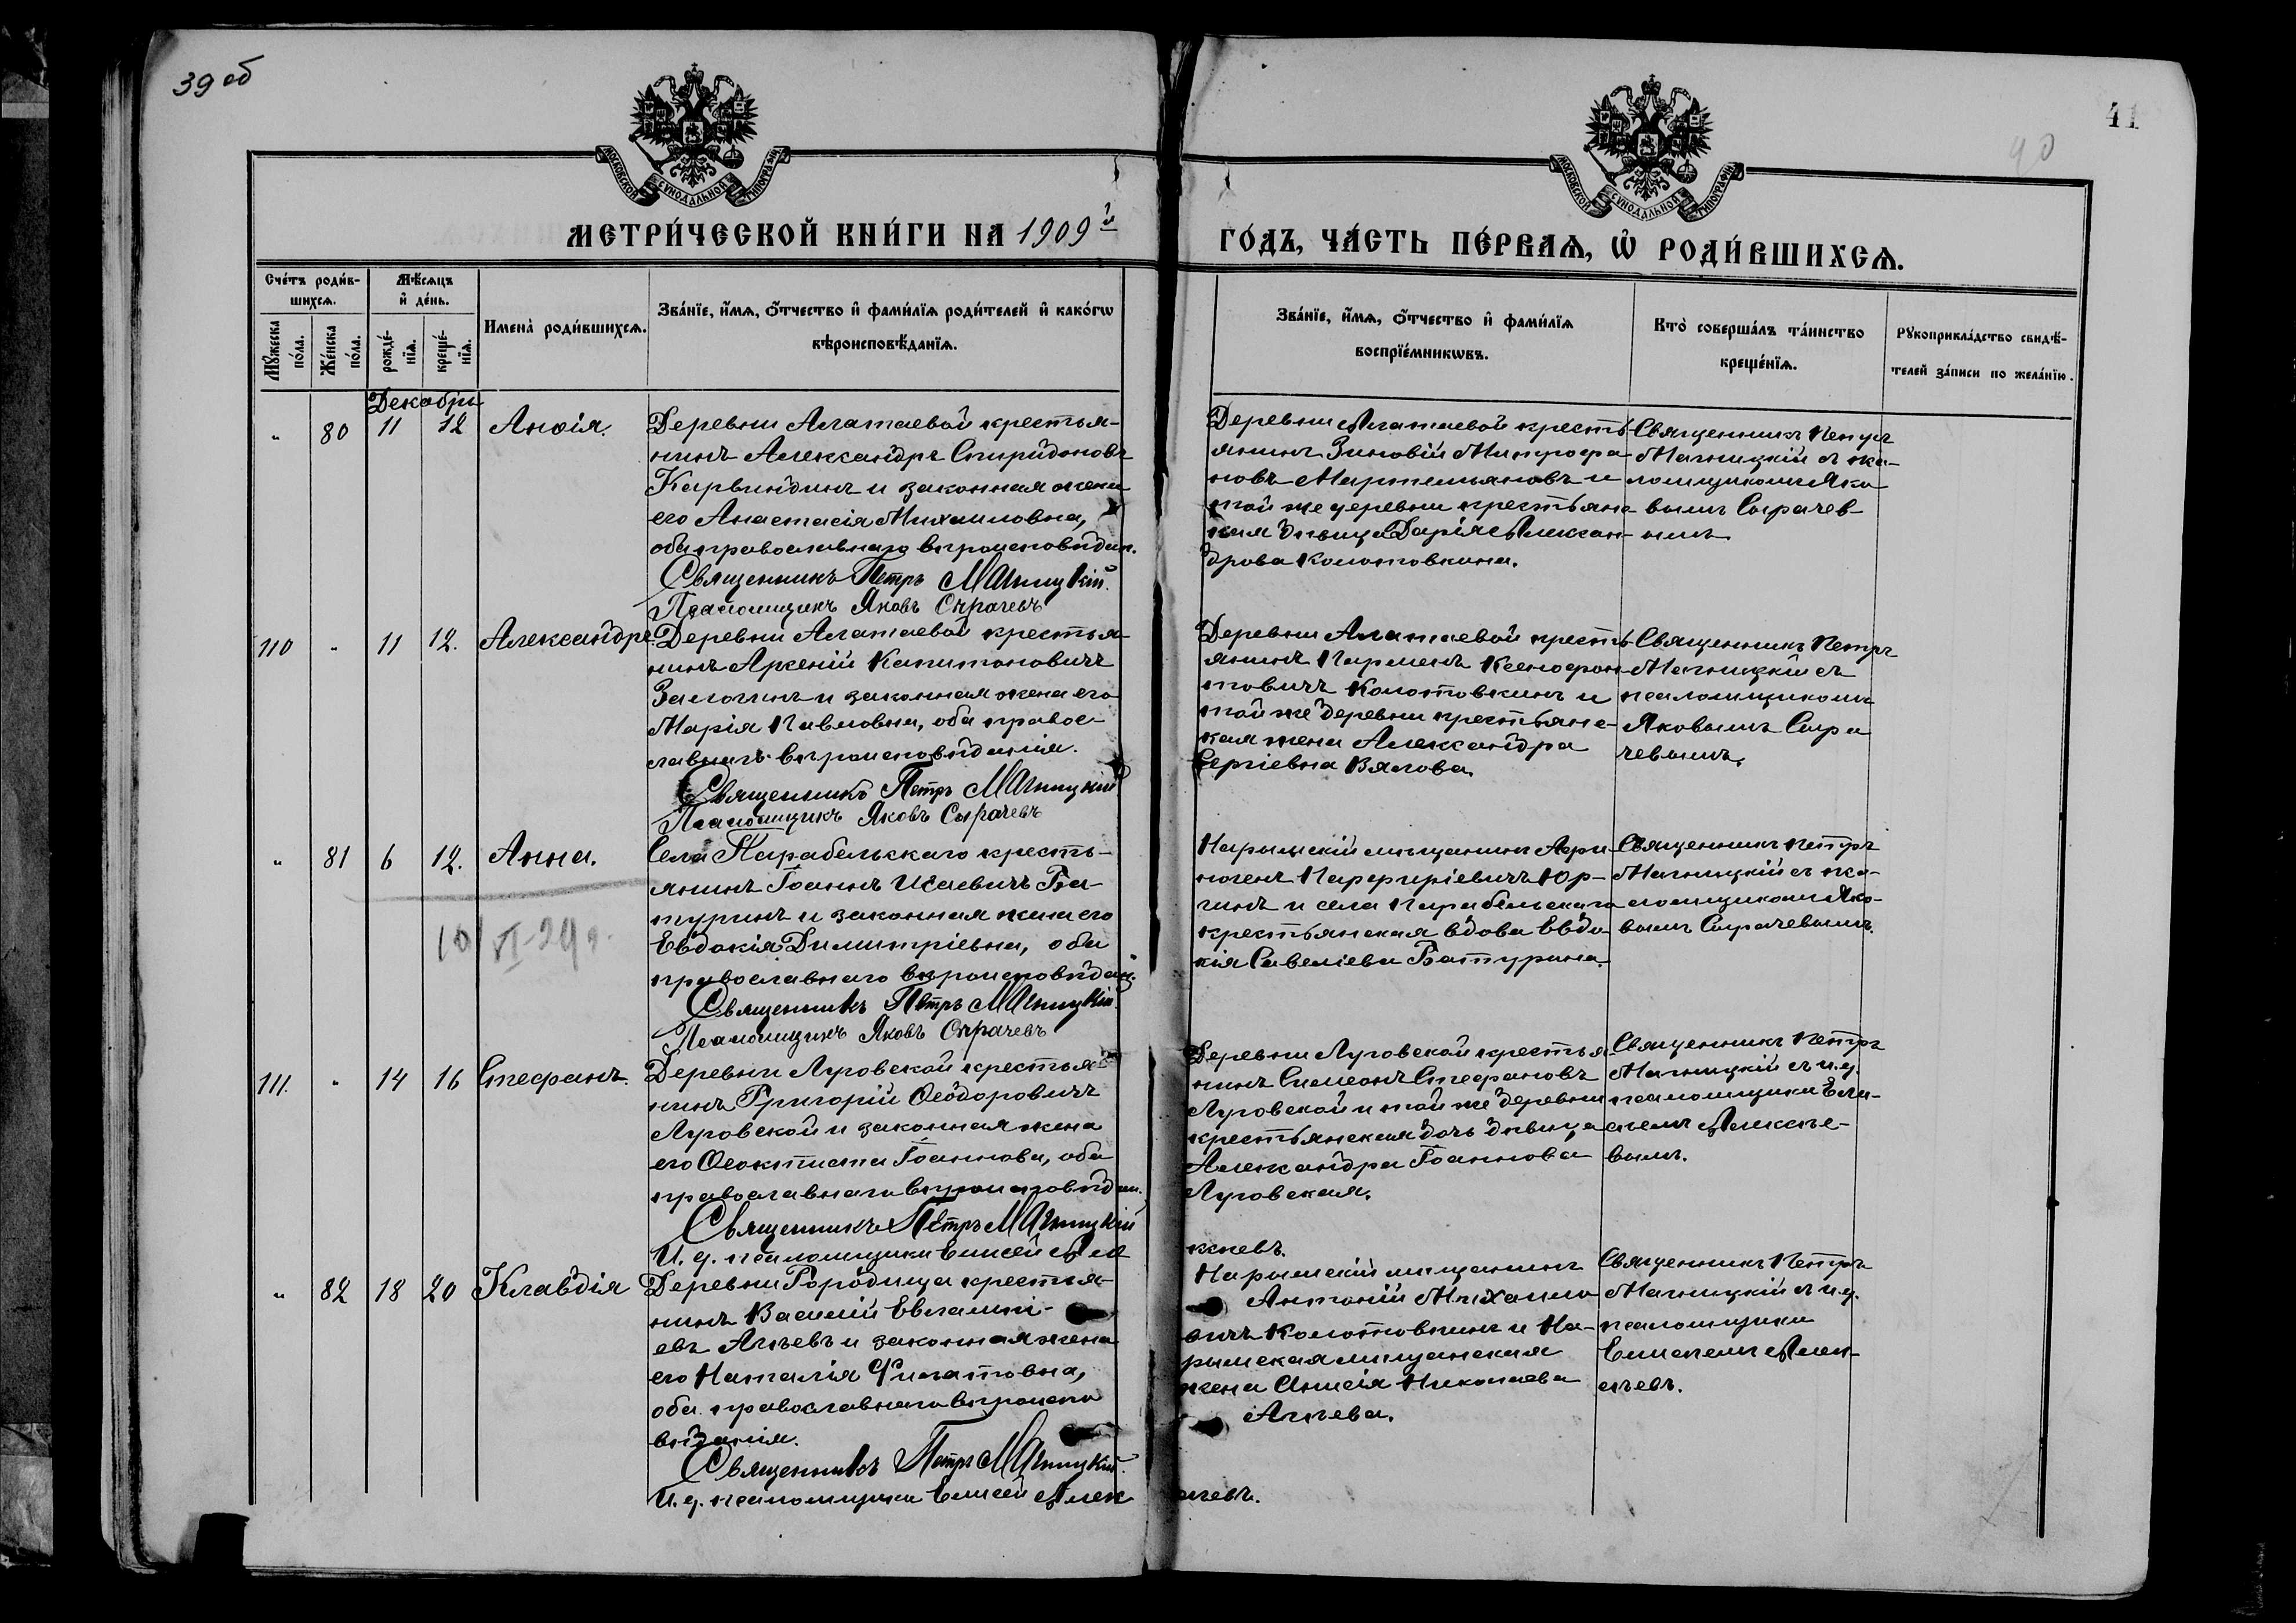 39 об
41
40
МОСКОВСКОЙ СѴНОДАЛЬНОЙ ТИПОГРАФІИ
МОСКОВСКОЙ СѴНОДАЛЬНОЙ ТИПОГРАФІИ
МЕТРИ́ЧЕСКОЙ КНИ́ГИ НА 1909й
ГО́ДЪ, ЧА́СТЬ ПЕ́РВАѦ, Ѡ҆ РОДИ́ВШИХСѦ.
Сче́тъ роди́в-
шихсѧ.
Мѣ́сѧцъ
и҆ де́нь.
Мꙋ́жеска по́ла.
Же́нска по́ла.
рожде́-нїѧ.
креще́-нїѧ.
Имена̀ роди́вшихсѧ.
Зва́нїе, и҆́мѧ, ѻ҆́тчество и҆ фами́лїѧ роди́телей и҆ како́гѡ
вѣроисповѣ́данїѧ.
Зва́нїе, и҆́мѧ, ѻ҆́тчество и҆ фами́лїѧ
воспрїе́мникѡвъ.
Кто̀ соверша́лъ та́инство
креще́нїѧ.
Рꙋкоприкла́дство свидѣ́-
телей за́писи по жела́нїю.
Декабрь
" 80 11 12 Анѳія.
Деревни Алатаевой крестья-
нинъ Александръ Спиридоновъ
Карвиндинъ и законная жена
его Анастасія Михаиловна,
оба православнаго вѣроисповѣдан.
Священникъ Петръ Магницкій.
Псаломщикъ Яковъ Сырачевъ
Деревни Алатаевой кресть-
янинъ Зиновій Митрофа-
новъ Мартемьяновъ и
той же деревни крестьянс-
кая дѣвица Дарія Алексан-
дрова Колотовкина.
Священникъ Петръ
Магницкій съ пса-
ломщикомъ Яко-
вымъ Сырачев-
ымъ
110 " 11 12. Александръ.
Деревни Алатаевой крестья-
нинъ Арсеній Капитоновичъ
Заложинъ и законная жена его
Марія Павловна, оба правос-
лавнаго вѣроисповѣданія.
Священникъ Петръ Магницкій
Псаломщикъ Яковъ Сырачевъ
Деревни Алатаевой кресть-
янинъ Парменъ Ксенофон-
товичъ Колотовкинъ и
той же деревни крестьянс-
кая жена Александра
Сергіевна Вялова.
Священникъ Петръ
Магницкій съ
псаломщикомъ
Яковымъ Сыра
чевымъ.
" 81 6 12. Анна.
10/VI-29 г.
Села Парабельскаго кресть-
янинъ Іоаннъ Исаевичъ Ба-
туринъ и законная жена его
Евдокія Димитріевна, оба
православнаго вѣроисповѣдан.
Священникъ Петръ Магницкій
Псаломщикъ Яковъ Сырачевъ
Нарымскій мѣщанинъ
Парфиріевичъ Юр-
гинъ и села Парабельскаго
крестьянская вдова Евдо-
кія Савеліева Батурина.
Священникъ Петръ
Магницкій съ пса-
ломщикомъ Яко-
вымъ Сырачевымъ.
111. " 14 16 Стефанъ.
Деревни Луговской крестья-
нинъ Григорій Ѳеодоровичъ
Луговской и законная жена
его Ѳеоктиста Іоаннова, оба
православнаго вѣроисповѣдан.
Священникъ Петръ Магницкій
И. д. псаломщика Елисей Але
ксѣевъ.
Деревни Луговской крестья-
нинъ Симеонъ Стефановъ
Луговской и той же деревни
крестьянская дочь дѣвица
Александра Іоаннова
Луговская.
Священникъ Петръ
Магницкій съ и.д.
псаломщика Ели-
сеемъ Алексѣе-
вымъ.
" 82 18 20 Клавдія
Деревни Городища крестья-
нинъ Василій Евлампі-
евъ Агѣевъ и законная жена
его Наталія Филатовна,
оба православнаго вѣроиспо
вѣданія.
Священникъ Петръ Магницкій.
И. д. псаломщика Елисей Алек
сѣевъ.
Нарымскій мѣщанинъ
Антоній Михаило
вичъ Колотовкинъ и На-
рымская мѣщанская
жена Анисія Николаева
Агѣева.
Священникъ Петръ
Магницкій съ и.д.
псаломщика
Елисеемъ Алек-
сѣевъ.